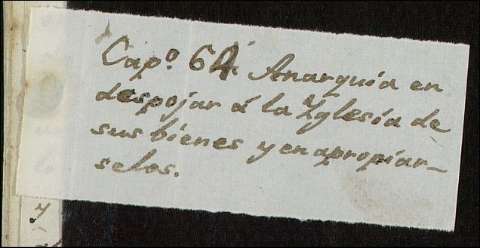 Capº. 64. Anarquia en
despojar á la Yglesia de
sus bienes y en apropiar-
selos.
y